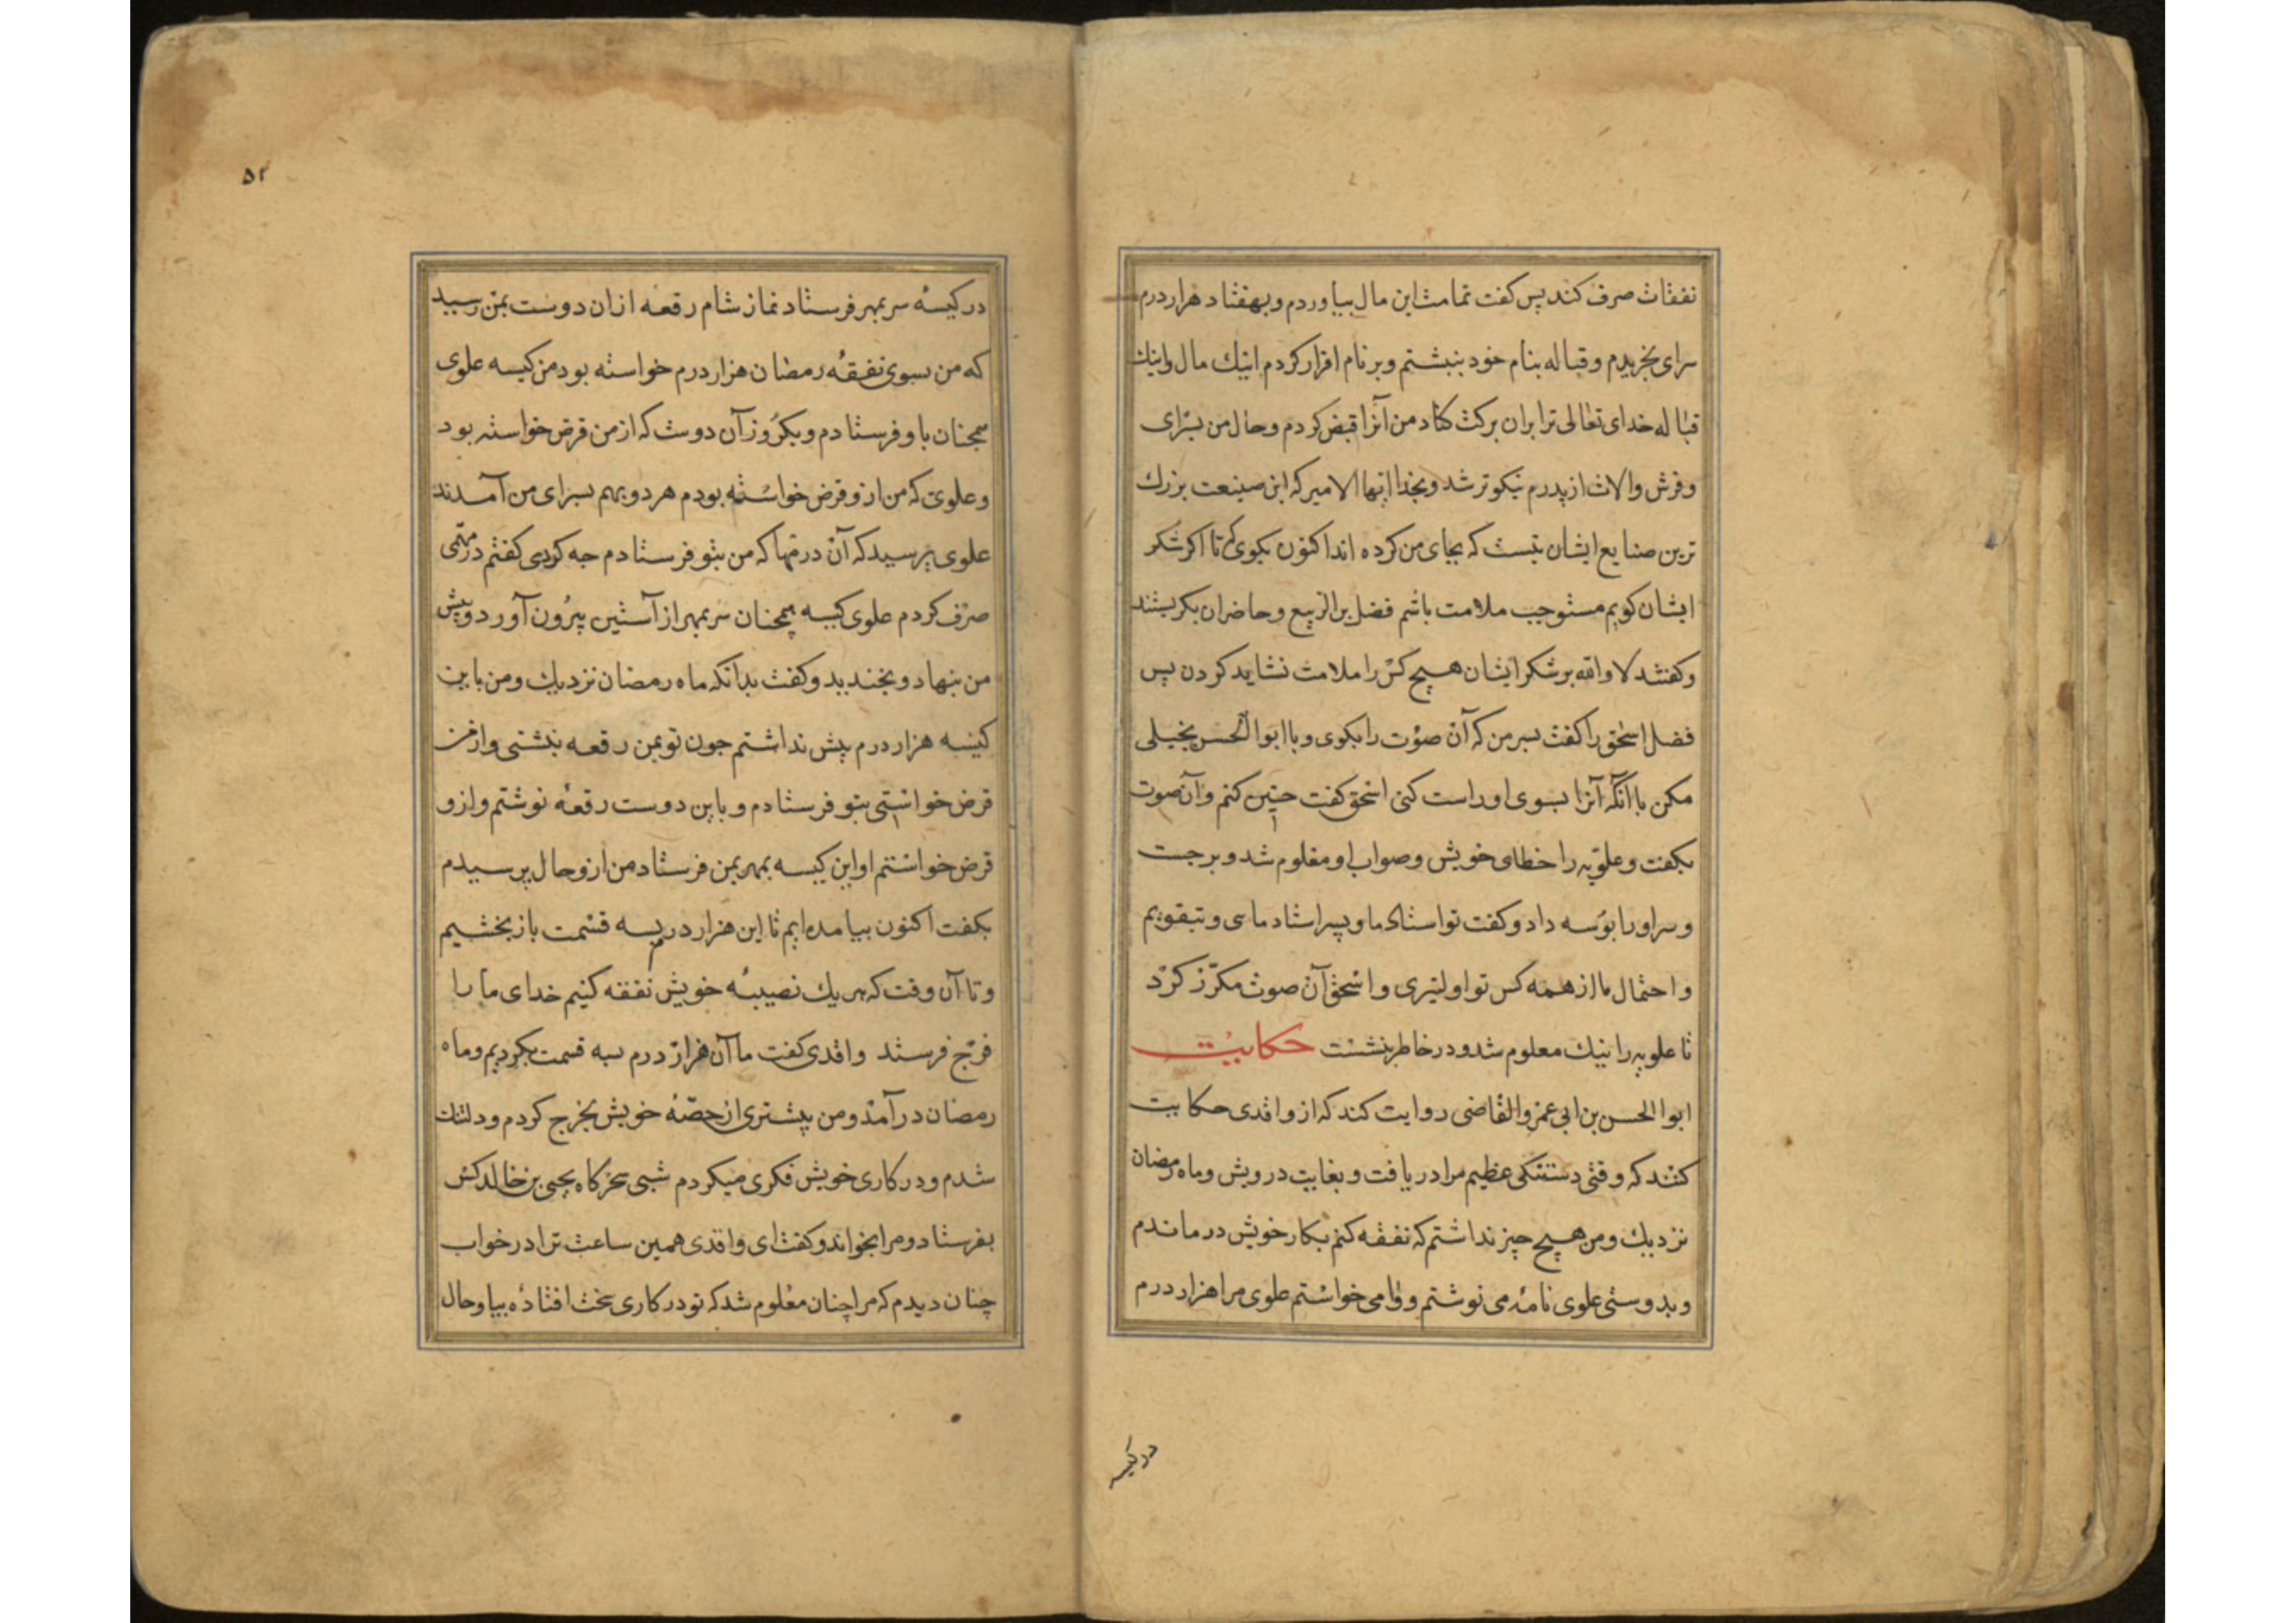 نفقات صرف کند پس کفت تمامت این مال بیاوردم و بهفتاد هزار درم
سرای بخریدم و قباله بنام خود بنبشتم و برنام اقرار کردم اینك مال واینك
قباله خدای تعالی ترا بران برکت کناد من آنرا قبض کردم و حال من بسرای
وفرش والات از پدرم نیکوتر شد وبخدا ایها الامیر که این صنیعت بزرك
ترین صنایع ایشان نیست که بجای من کرده اند اکنون بکوی تا اکر شکر
ایشان کویم مستوجب ملامت باشم فضل بن الربیع وحاضران بکریستند
وکفتند لا والله بر شکر ایشان هیچ کس را ملامت نشاید کردن پس
فضل اسحق را کفت بسر من که آن صوت را بکوی و با ابوالحسن بخیلی
مکن با آنکه آنرا بسوی او راست کنی اسحق کفت چنین کنم وآن صوت
بکفت وعلویه را خطای خویش وصواب او معلوم شد و برجست
وسر او را بوسه داد وکفت تو استاد ما و پسر استاد مای و تبقویم
واحتمال ما از همه کس تو اولیتری واسحق آن صوت مکرّر کرد
تا علویه را نیك معلوم شد و در خاطر بنشست حکایت
ابوالحسن بن ابی عمرو القاضی روایت کند که از واقدی حکایت
کنند که وقتی دستنکی عظیم مرا دریافت و بغایت درویش وماه رمضان
نزدیك ومن هیچ چیز نداشتم که نفقه کنم بکار خویش درماندم
وبدوستی علوی نامه می نوشتم و وامی خواستم علوی مرا هزار درم
در کیسه
۵۲
در کیسهٔ سر بمهر فرستاد نماز شام رقعه ازان دوست بمن رسید
که من بسوی نفقهٔ رمضان هزار درم خواسته بود من کیسه علوی
همچنان باو فرستادم و یکروز آن دوست که از من قرض خواسته بود
وعلوی که من ازو قرض خواسته بودم هر دو بهم بسرای من آمدند
علوی پرسید که آن درمها که من بتو فرستادم چه کردی کفتم در مهمّی
صرف کردم علوی کیسه همچنان سر بمهر از آستین بیرون آورد وپیش
من بنهاد و بخندید وکفت بدانکه ماه رمضان نزدیك ومن باین
کیسه هزار درم بیش نداشتم چون تو بمن رقعه نبشتی واز من
قرض خواستی بتو فرستادم و باین دوست رقعه نوشتم وازو
قرض خواستم او این کیسه بمهر بمن فرستاد من ازو حال پرسیدم
بکفت اکنون بیامده ایم تا این هزار درم بسه قسمت باز بخشیم
و تا آن وقت که هر یك نصیبهٔ خویش نفقه کنیم خدای ما را
فرج فرستد واقدی کفت ما آن هزار درم بسه قسمت بکردیم وماه
رمضان درآمد ومن بیشتری از حصّهٔ خویش بخرج کردم ودلتنك
شدم و در کاری خویش فکری میکردم شبی سحرکاه یحیی بن خالد کس
بفرستاد ومرا بخواند وکفت ای واقدی همین ساعت ترا در خواب
چنان دیدم که مرا چنان معلوم شد که تو در کاری سخت افتادهٔ بیا وحال